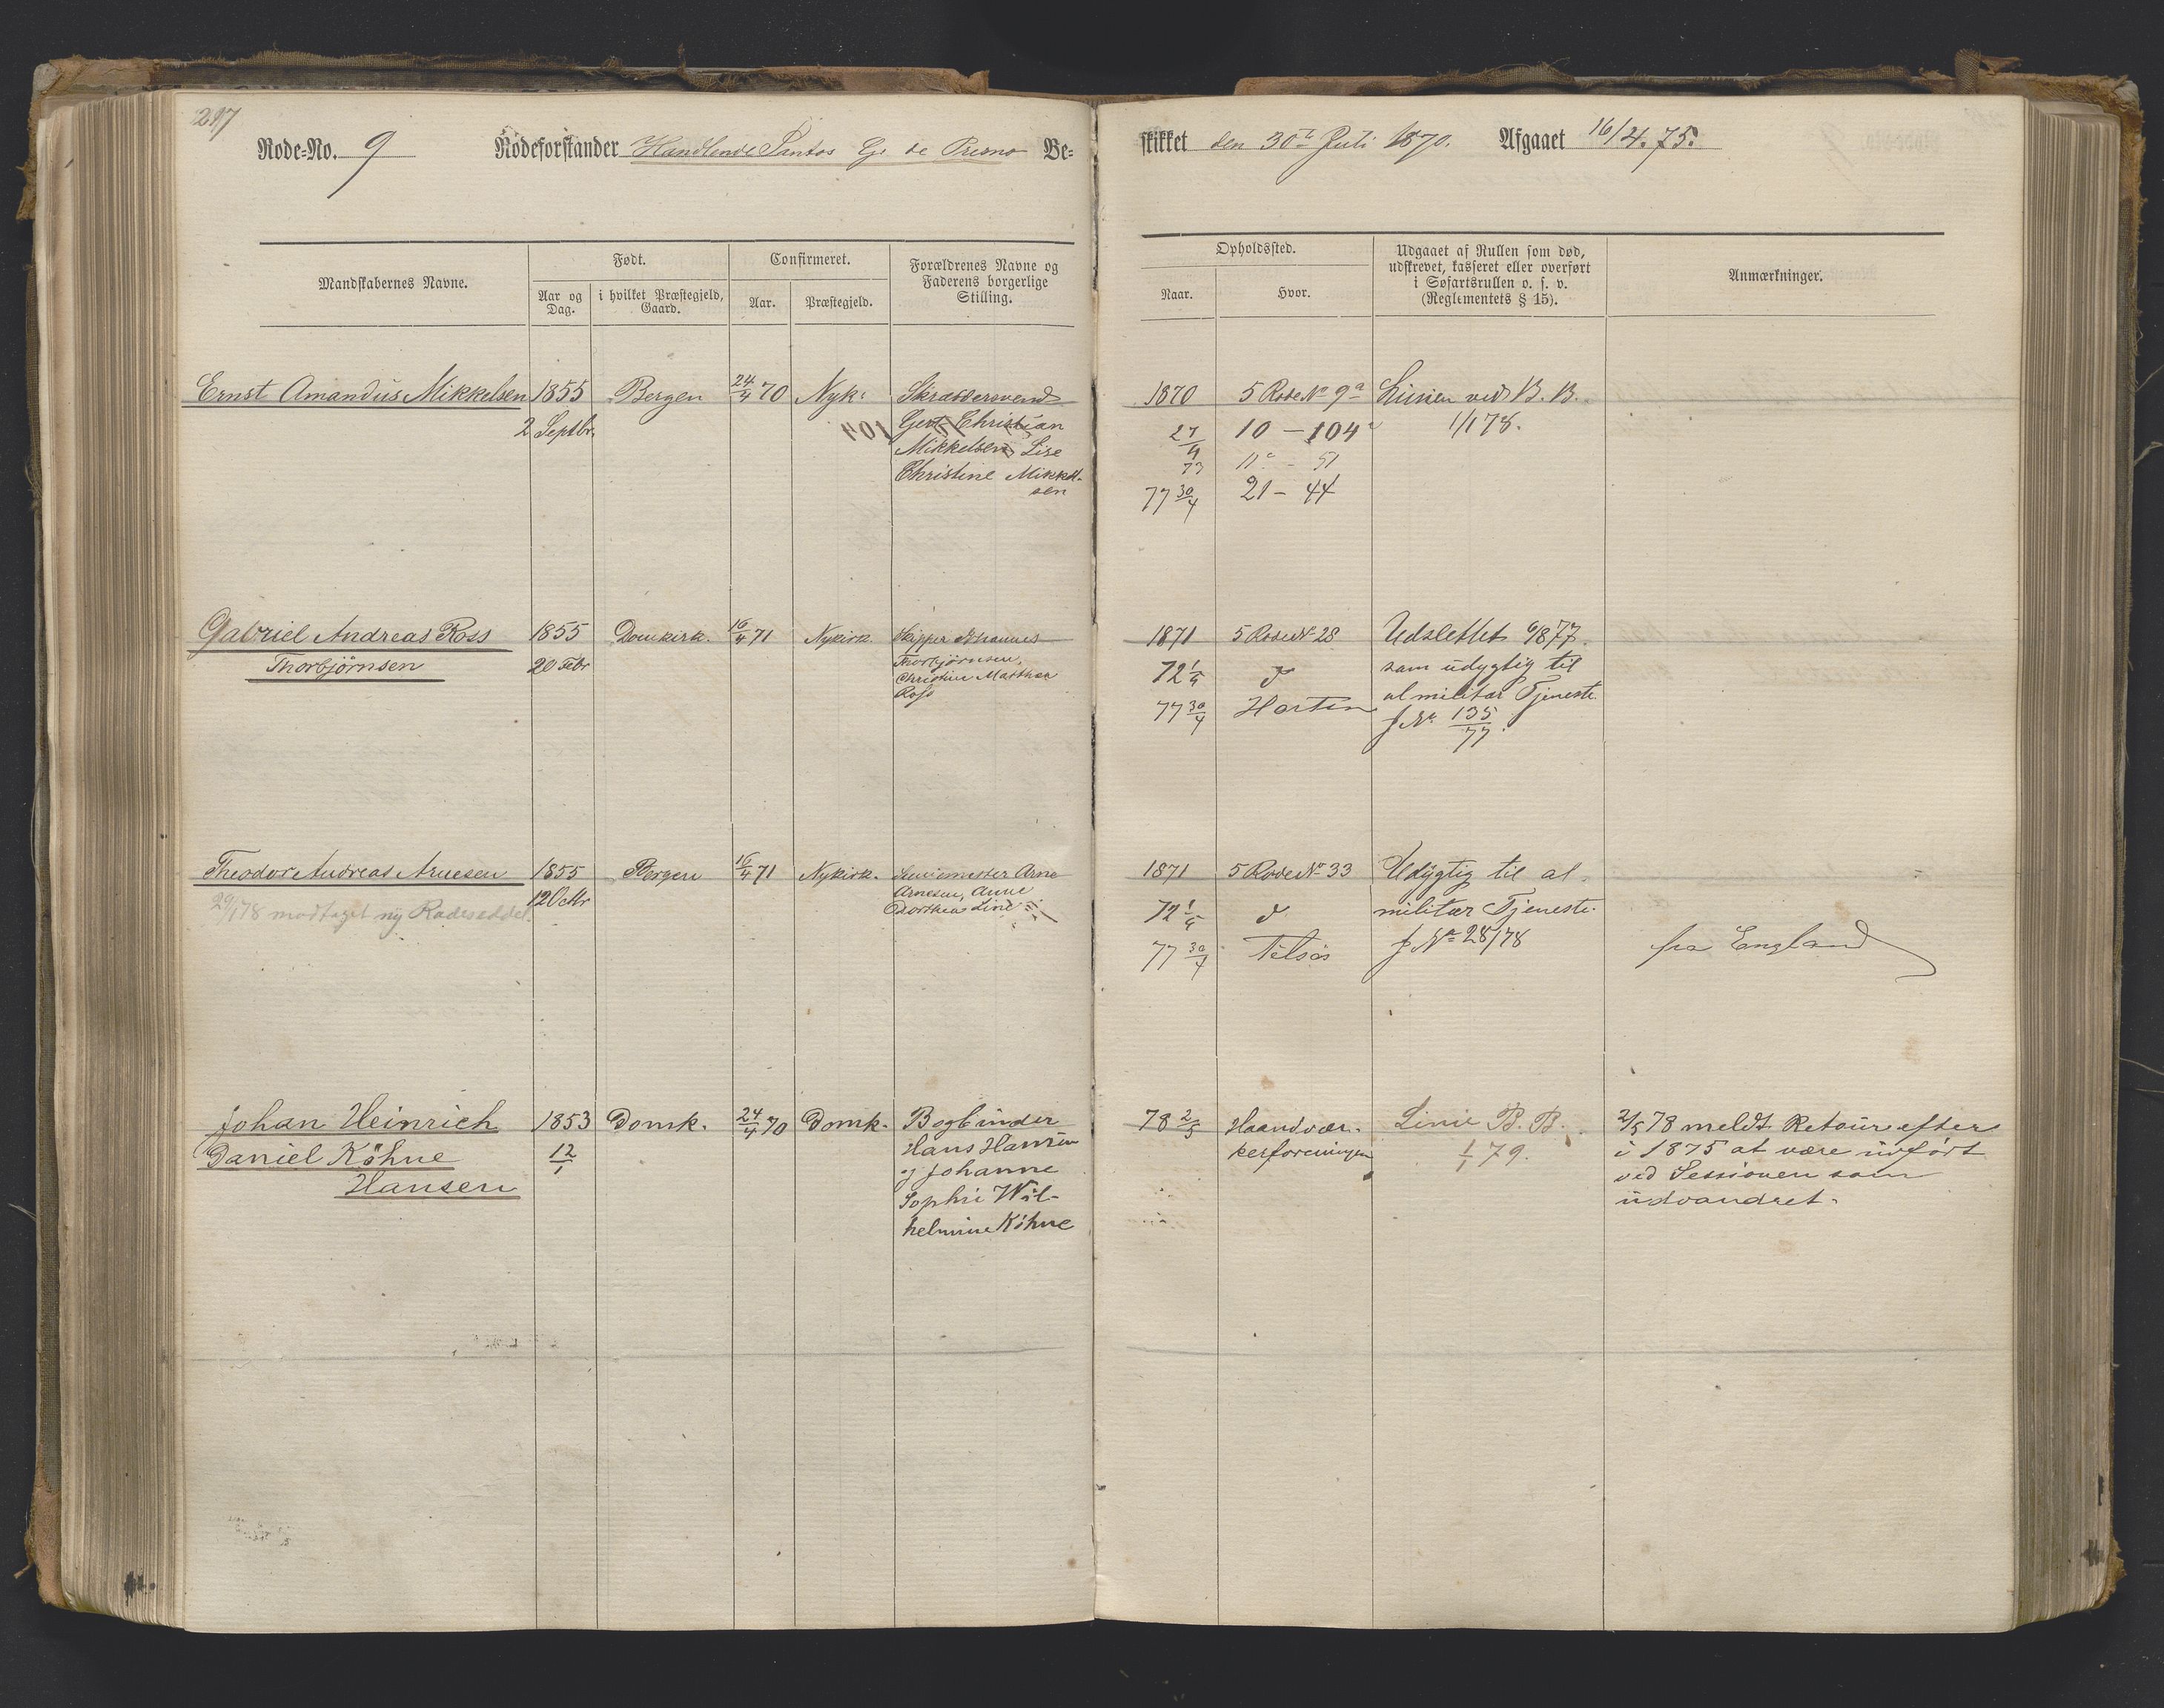 217
Rode-No. 9 Rodeforstander Handlende Santos G. de Presno Be-
skikket den 30te Juli 1870. Afgaaet 16/4.75.
Mandskabernes Navne.
Født.
Aar og Dag.
i hvilket Præstegjeld, Gaard.
Confirmeret.
Aar.
Præstegjeld.
Forældrenes Navne og
Faderens borgerlige
Stilling.
Opholdssted.
Naar.
Hvor.
Udgaaet af Rullen som død,
udskrevet, kasseret eller overført
i Søfartsrullen o. s. v.
(Reglementets § 15).
Anmærkninger.
Ernst Amandus Mikkelsen 1855 Bergen 24/4 70 Nyk: Skræddersvend
2 Septbr. Gert Christian
Mikkelsen Lise
Christine Mikkel-
sen
1870 5 Rode No 9a Linien ved B. B.
27/4 73 10 - 104 1/1 78.
11c - 51
77 30/4 21 - 44
Gabriel Andreas Ross 1855 Domkirk. 16/4 71 Nykirk. Skipper Johannes
Thorbjörnsen 20 Febr Thorbjörnsen,
Christine Matthea
Ross
1871 5 Rode No 28 Udslettet 6/8 77.
72 1/4 d som udygtig til
77 30/4 Horten al militær Tjeneste
J No 135/77.
Theodor Andreas Arnesen 1855 Bergen 16/4 71 Nykirk. Arne
29/1 78 modtaget ny Rodeseddel. 12 Octbr Arnesen, Anne
Dorthea Lind
1871 5 Rode No 33 Udygtig til al
72 1/4 d militær Tjeneste.
77 30/4 Tilsös J No 28/78 fra England
Johan Heinrich 1853 Domk. 24/4 70 Domk. Bogbinder
Daniel Köhne 12/1 Hans Hansen
Hansen og Johanne
Sophie Wil-
helmine Köhne
78 2/5 Haandvær- Linie B. B. 2/5 78 meldt Retour efter
kerforeningen 1/1 79. i 1875 at være indført
ved Sessionen som
udvandret.